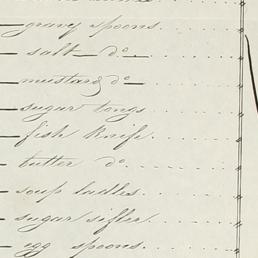 — gravy spoons
— salt — do —
— mustard do —
— sugar tongs
— fish knife
— butter do
— soup ladles
— sugar sifter
— egg spoons